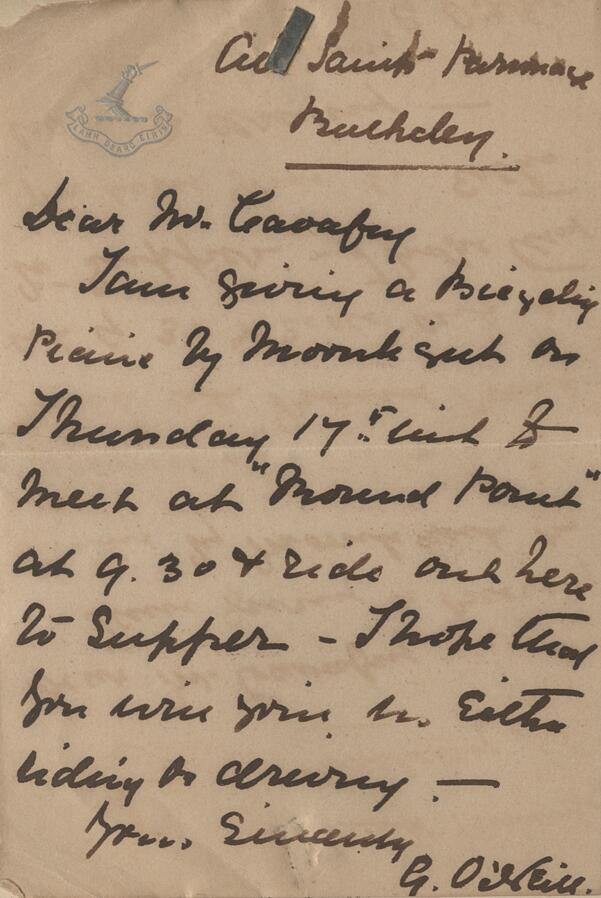 All Saints Parsonage
Bulkeley.
LAMH DEARG EIRIN
Dear Mr. Cavafy
I am giving a Bicycling
Picnic by Moonlight on
Thursday 17th inst to
meet at "Mound Point"
at 9.30 & ride out here
to Supper - I hope that
you will join us Either
riding or driving. —
Yours Sincerely
G. O'Neill.